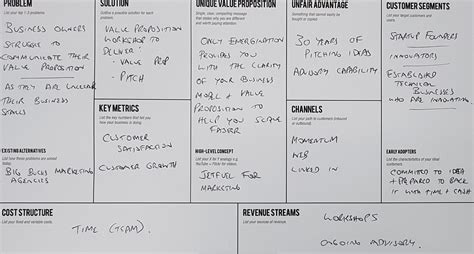 PROBLEM
List your top 1-3 problems.
BUSINESS OWNERS
STRUGGLE TO
COMMUNICATE THEIR
VALUE PROPOSITION
AS THEY ARE UNCLEAR
THEIR BUSINESS
STALLS
EXISTING ALTERNATIVES
List how these problems are solved today.
BIG BUCKS MARKETING
AGENCIES
SOLUTION
Outline a possible solution for each problem.
VALUE PROPOSITION
WORKSHOP TO
DELIVER:
- VALUE PROP
- PITCH
KEY METRICS
List the key numbers that tell you how your business is doing.
CUSTOMER
SATISFACTION
CUSTOMER GROWTH
UNIQUE VALUE PROPOSITION
Single, clear, compelling message that states why you are different and worth paying attention.
ONLY
PROVIDES YOU
WITH THE CLARITY
OF YOUR BUSINESS
MODEL + VALUE
PROPOSITION TO
HELP YOU SCALE
FASTER
HIGH-LEVEL CONCEPT
List your X for Y analogy e.g. YouTube = Flickr for videos.
JETFUEL FOR
MARKETING
UNFAIR ADVANTAGE
Something that cannot easily be bought or copied.
30 YEARS OF
PITCHING IDEAS
ADVISORY CAPABILITY
CHANNELS
List your path to customers (inbound or outbound).
MOMENTUM
WEB
LINKED IN
CUSTOMER SEGMENTS
List your target customers and users.
STARTUP FOUNDERS
INNOVATORS
ESTABLISHED
TECHNICAL
BUSINESSES
WHO ARE INNOVATING
EARLY ADOPTERS
List the characteristics of your ideal customers.
COMMITTED TO IDEA
+ PREPARED TO BACK
IT WITH TIME + CASH
COST STRUCTURE
List your fixed and variable costs.
TIME (TEAM).
REVENUE STREAMS
List your sources of revenue.
WORKSHOPS
ONGOING ADVISORY.